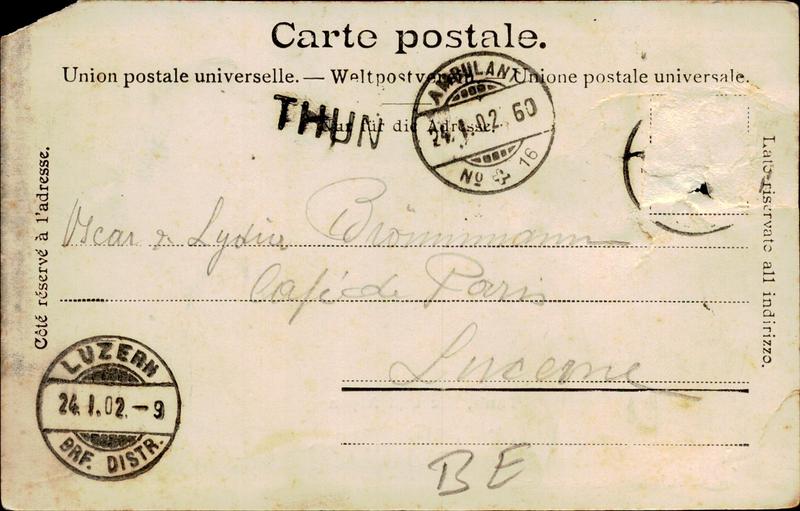 Carte postale.
Union postale universelle. — Weltpostverein. — Unione postale universale.
Nur für die Adresse.
THUN
AMBULANT
24.I.02 60
No 16
Côté réservé à l'adresse.
Lato riservato all indirizzo.
Oscar & Lydia Brönnimann
Café de Paris
Lucerne
LUZERN
24.I.02.-9
BRF. DISTR.
BE